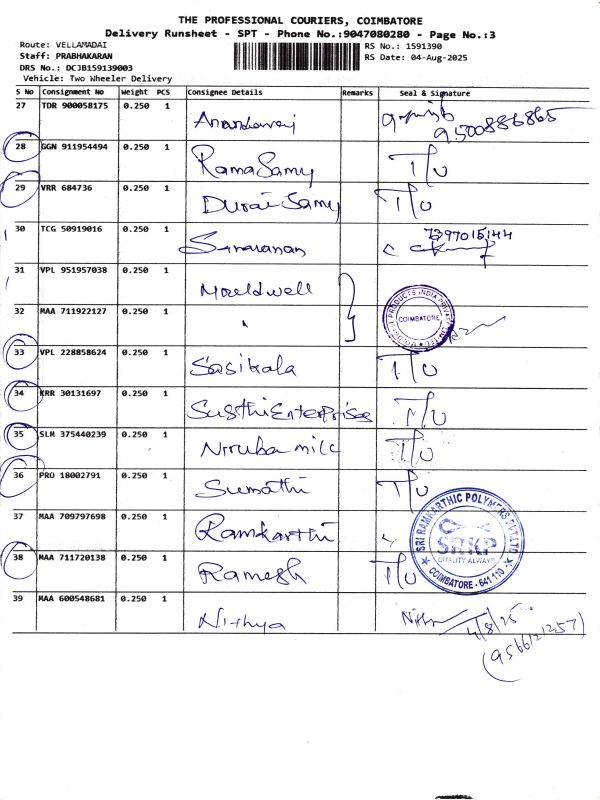 THE PROFESSIONAL COURIERS, COIMBATORE
Delivery Runsheet - SPT - Phone No.:9047080280 - Page No.:3
Route: VELLAMADAI RS No.: 1591390
Staff: PRABHAKARAN RS Date: 04-Aug-2025
DRS No.: DCJB159139003
Vehicle: Two Wheeler Delivery
S No Consignment No Weight PCS Consignee Details Remarks Seal & Signature
27 TDR 900058175 0.250 1 9500886865
28 GGN 911954494 0.250 1 RamaSamy T/U
29 VRR 684736 0.250 1 DuraiSamy T/U
30 TCG 50919016 0.250 1 Saravanan 7397015144
31 VPL 951957038 0.250 1 Mouldwell
32 MAA 711922127 0.250 1 " COIMBATORE
33 VPL 228858624 0.250 1 Sasikala T/U
34 KRR 30131697 0.250 1 SusthiEnterprises T/U
35 SLM 375440239 0.250 1 Niruba mill T/U
36 PRO 18002791 0.250 1 Sumathi T/U
37 MAA 709797698 0.250 1 Ramkarthi SRI RAMKARTHIC POLYMERS PVT LTD SRKP QUALITY ALWAYS COIMBATORE - 641 110
38 MAA 711720138 0.250 1 Ramesh T/U
39 MAA 600548681 0.250 1 Nithya 4/8/25
(9566121257)